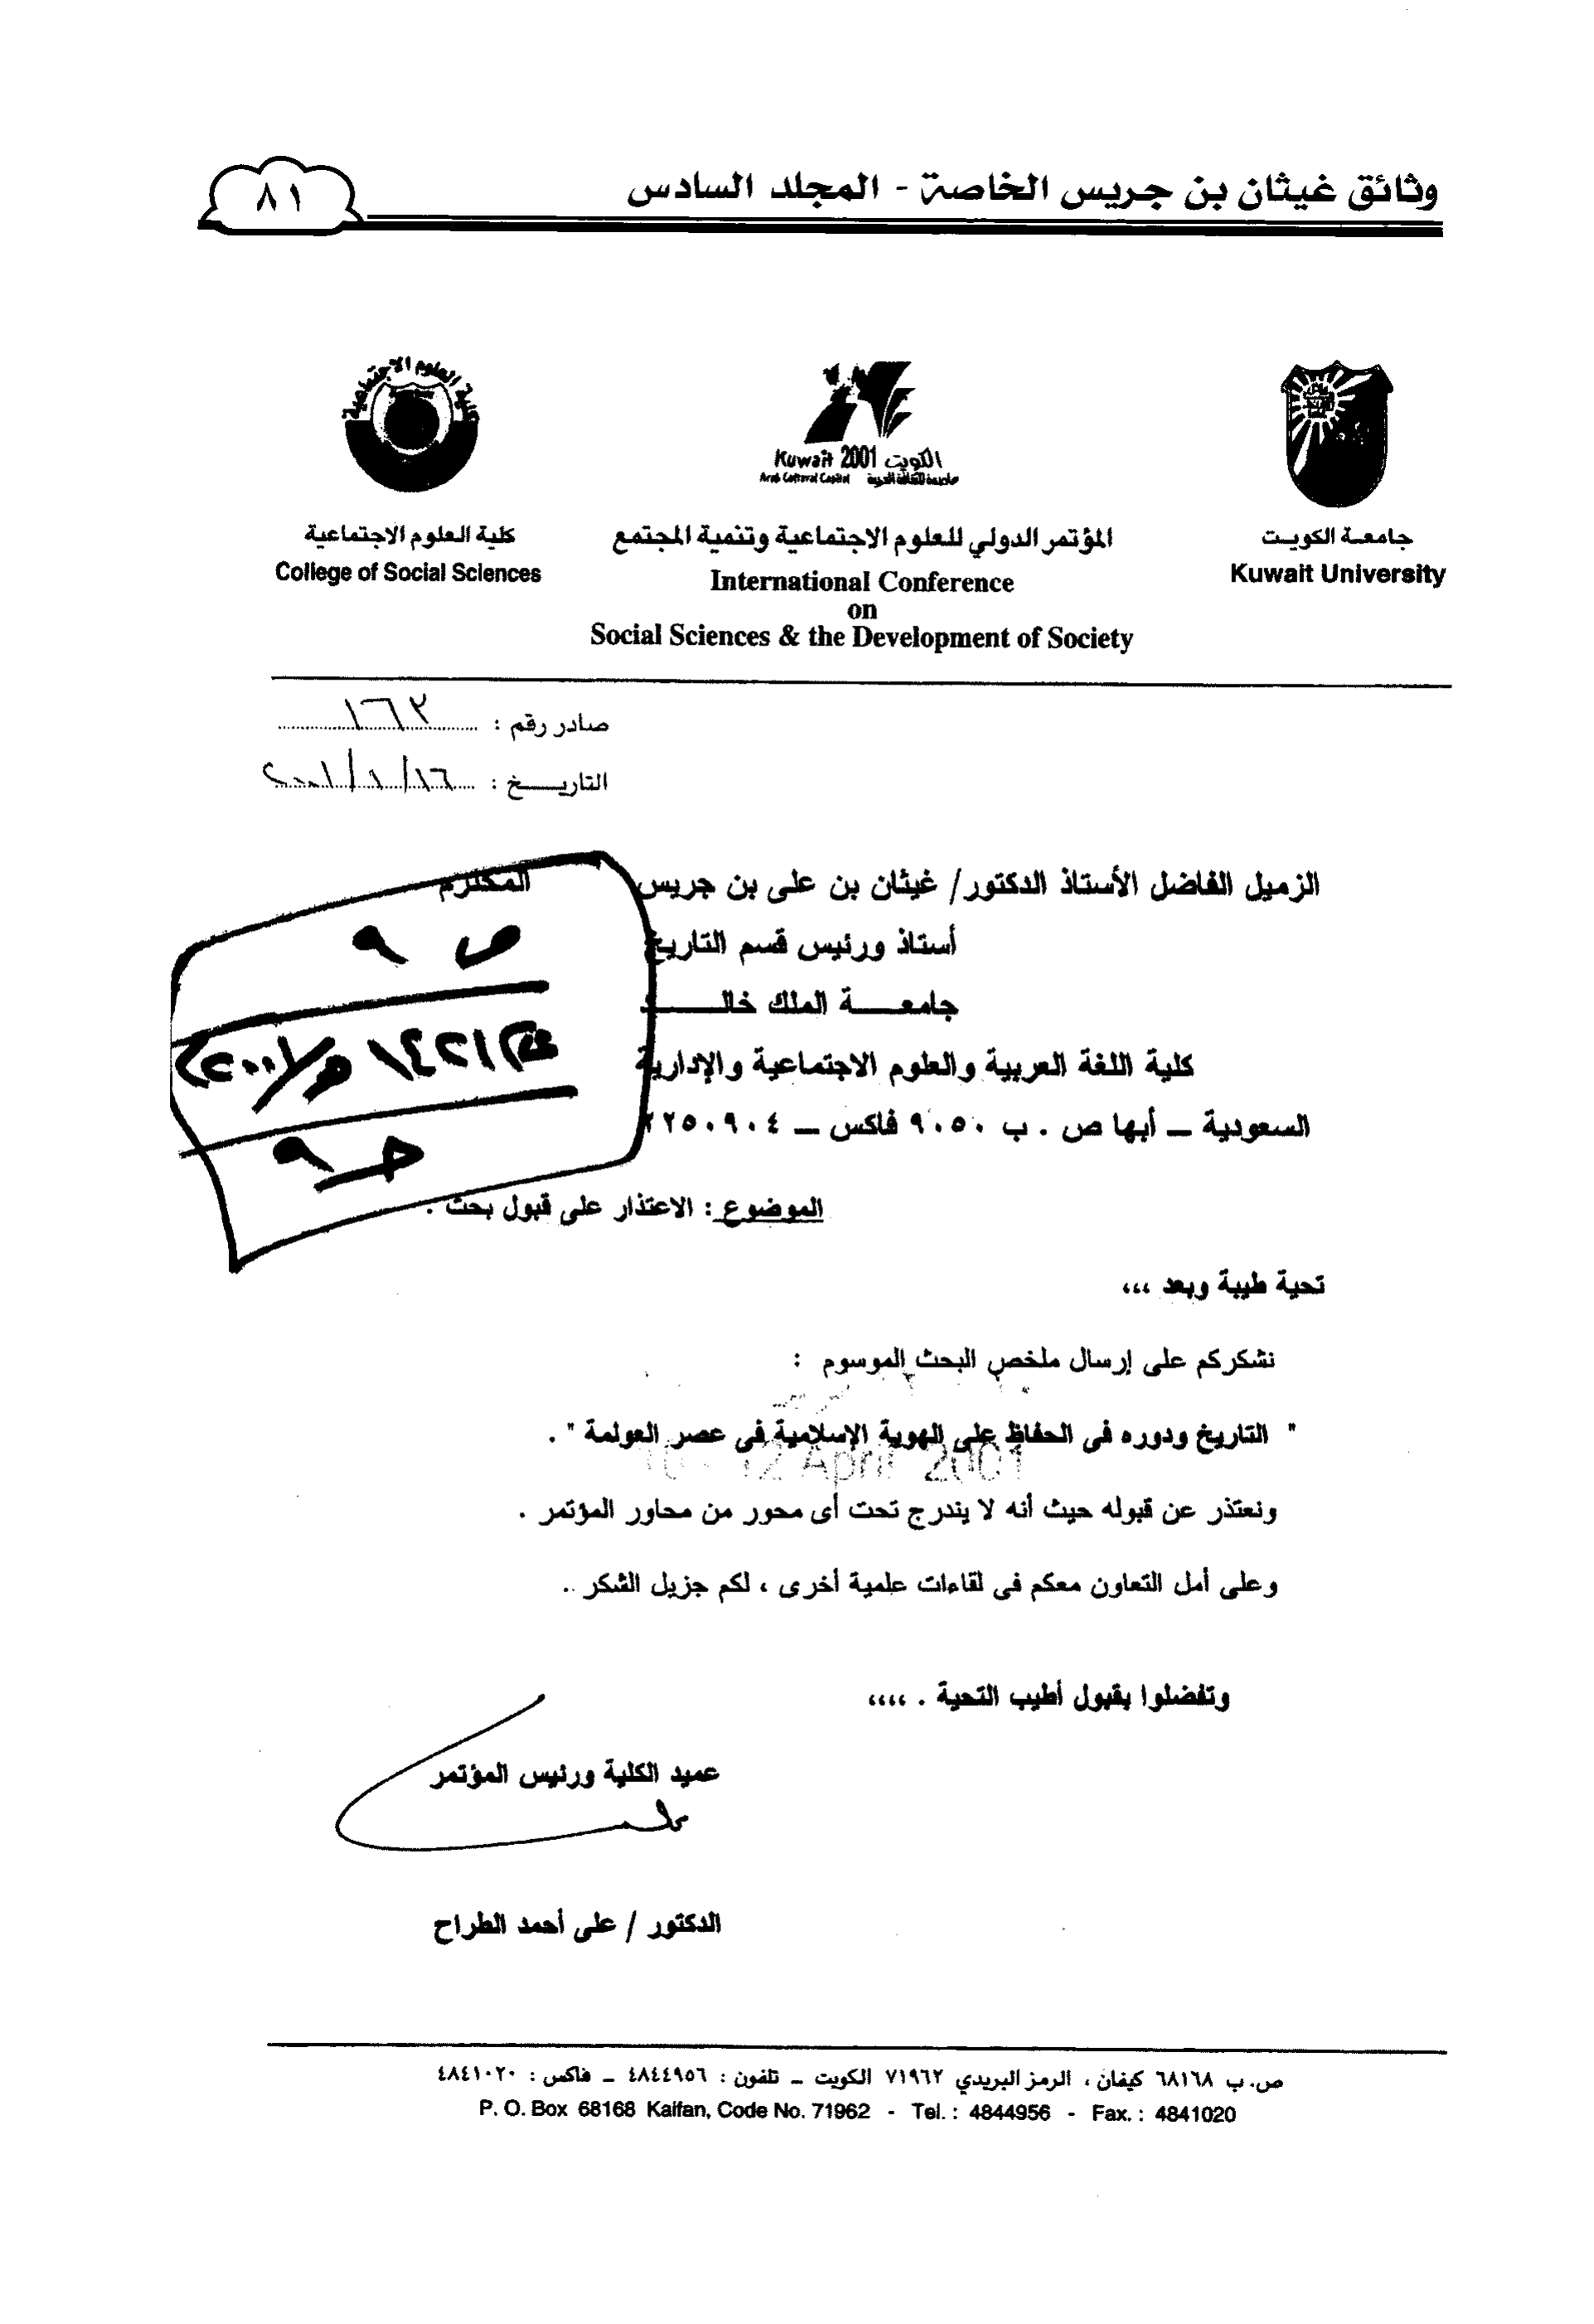 وثائق غيثان بن جريس الخاصة - المجلد السادس
٨١
كلية العلوم الاجتماعية
Kuwait 2001 الكويت
Arab Cultural Capital عاصمة للثقافة العربية
جامعة الكويت
Kuwait University
المؤتمر الدولي للعلوم الاجتماعية وتنمية المجتمع
International Conference
on
Social Sciences & the Development of Society
كلية العلوم الاجتماعية
College of Social Sciences
صادر رقم : ١٦٢
التاريـــخ : ١٦/١/٢٠٠١
الزميل الفاضل الأستاذ الدكتور/ غيثان بن على بن جريس المحترم
أستاذ ورئيس قسم التاريخ
جامعـــــة الملك خالـــــد
كلية اللغة العربية والعلوم الاجتماعية والإدارية
السعودية – أبها ص . ب ٩٠٥٠ فاكس – ٢٢٥٠٩٠٤
ص ٩
١٤٢١هـ/٢٠٠١م
حـ ٩
الموضوع : الاعتذار على قبول بحث .
تحية طيبة وبعد ،،،
نشكركم على إرسال ملخص البحث الموسوم :
" التاريخ ودوره فى الحفاظ على الهوية الإسلامية فى عصر العولمة " .
12 April 2001
ونعتذر عن قبوله حيث أنه لا يندرج تحت أى محور من محاور المؤتمر .
وعلى أمل التعاون معكم فى لقاءات علمية أخرى ، لكم جزيل الشكر ..
وتفضلوا بقبول أطيب التحية . ،،،،
عميد الكلية ورئيس المؤتمر
الدكتور / على أحمد الطراح
ص.ب ٦٨١٦٨ كيفان ، الرمز البريدي ٧١٩٦٢ الكويت – تلفون : ٤٨٤٤٩٥٦ – فاكس : ٤٨٤١٠٢٠
P. O. Box 68168 Kaifan, Code No. 71962 - Tel. : 4844956 - Fax. : 4841020